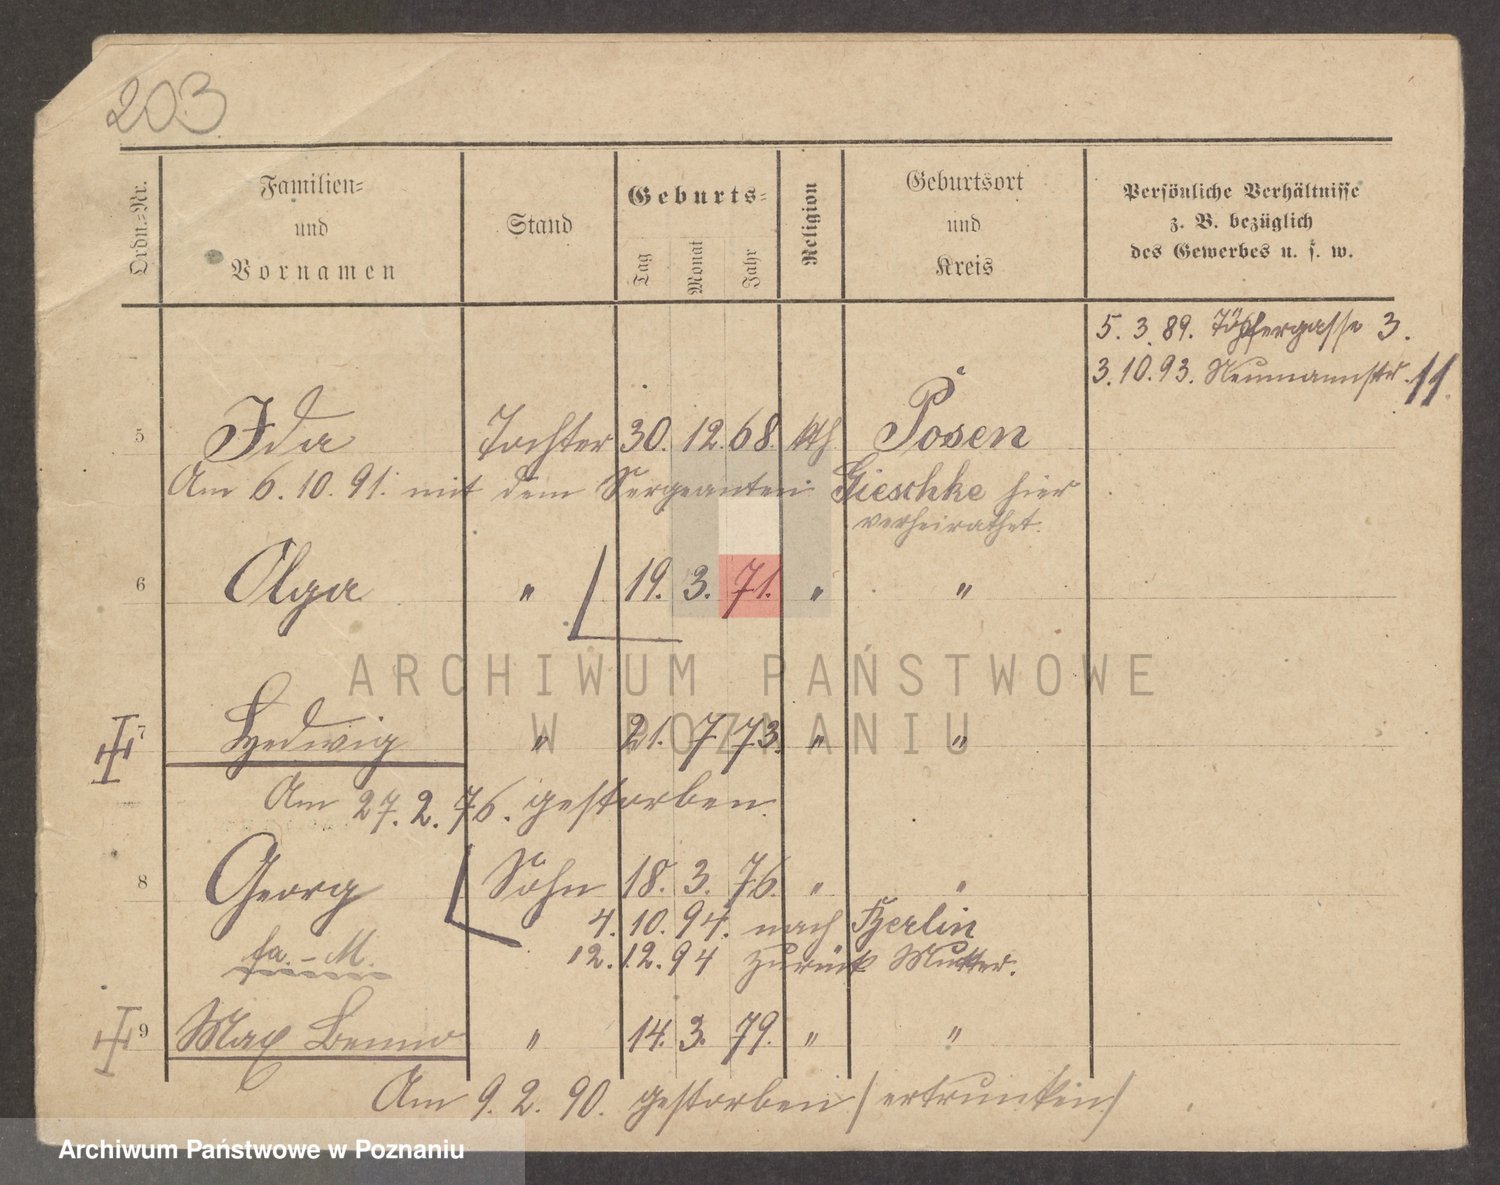 203
Ordn.=Nr.
Familien=
und
Vornamen
Stand
Geburts=
Tag
Monat
Jahr
Religion
Geburtsort
und
Kreis
Persönliche Verhältnisse
z. B. bezüglich
des Gewerbes u. s. w.
5. 3. 89. Töpfergasse 3.
3. 10. 93. Neumannstr. 11.
5 Ida Tochter 30. 12. 68. kth Posen
Am 6. 10. 91. mit dem Sergeanten Gieschke hier
verheirathet.
6 Olga " 19. 3. 71. " "
ARCHIWUM PAŃSTWOWE
W POZNANIU
7 Hedwig " 21. 7. 73. " "
Am 27. 2. 76. gestorben.
8 Georg Sohn 18. 3. 76. " "
4. 10. 94. nach Berlin
fa. - M.
12. 12. 94 zurück Mutter.
9 Max Benno " 14. 3. 79. " "
Am 9. 2. 90. gestorben (ertrunken)
Archiwum Państwowe w Poznaniu